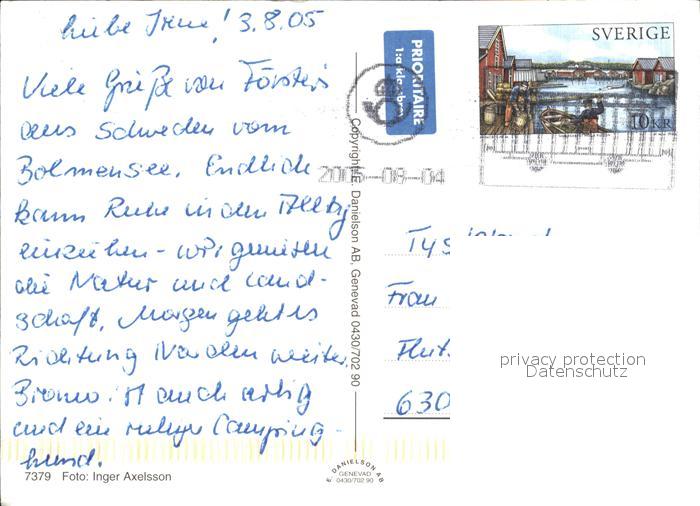 Liebe Irene! 3.8.05
Viele Grüße von Försters
aus Schweden vom
Bolmensee. Endlich
kann Ruhe in den Alltag
einziehen - wir genießen
die Natur und Land-
schaft. Morgen geht es
Richtung Norden weiter.
ist auch artig
und ein ruhiger Camping-
hund.
7379 Foto: Inger Axelsson
PRIORITAIRE
1:a klassbrev
SVERIGE
10 KR
2005-08-04
Copyright: E. Danielson AB, Genevad 0430/702 90
Frau
630
privacy protection
Datenschutz
E. DANIELSON AB
GENEVAD
0430/702 90